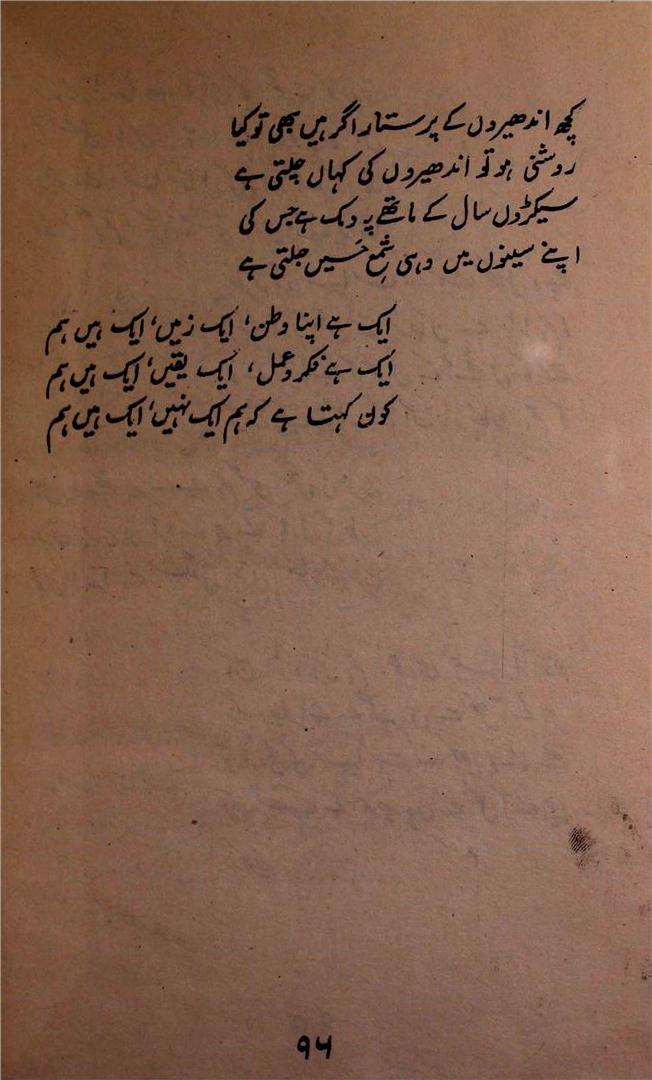 کچھ اندھیروں کے پرستار اگر ہیں بھی تو کیا
روشنی ہو تو اندھیروں کی کہاں چلتی ہے
سیکڑوں سال کے ماتھے پہ دمک ہے جس کی
اپنے سینوں میں وہی شمعِ حسیں جلتی ہے
ایک ہے اپنا وطن، ایک زمیں، ایک ہیں ہم
ایک ہے فکر و عمل، ایک یقیں، ایک ہیں ہم
کون کہتا ہے کہ ہم ایک نہیں، ایک ہیں ہم
۹۶